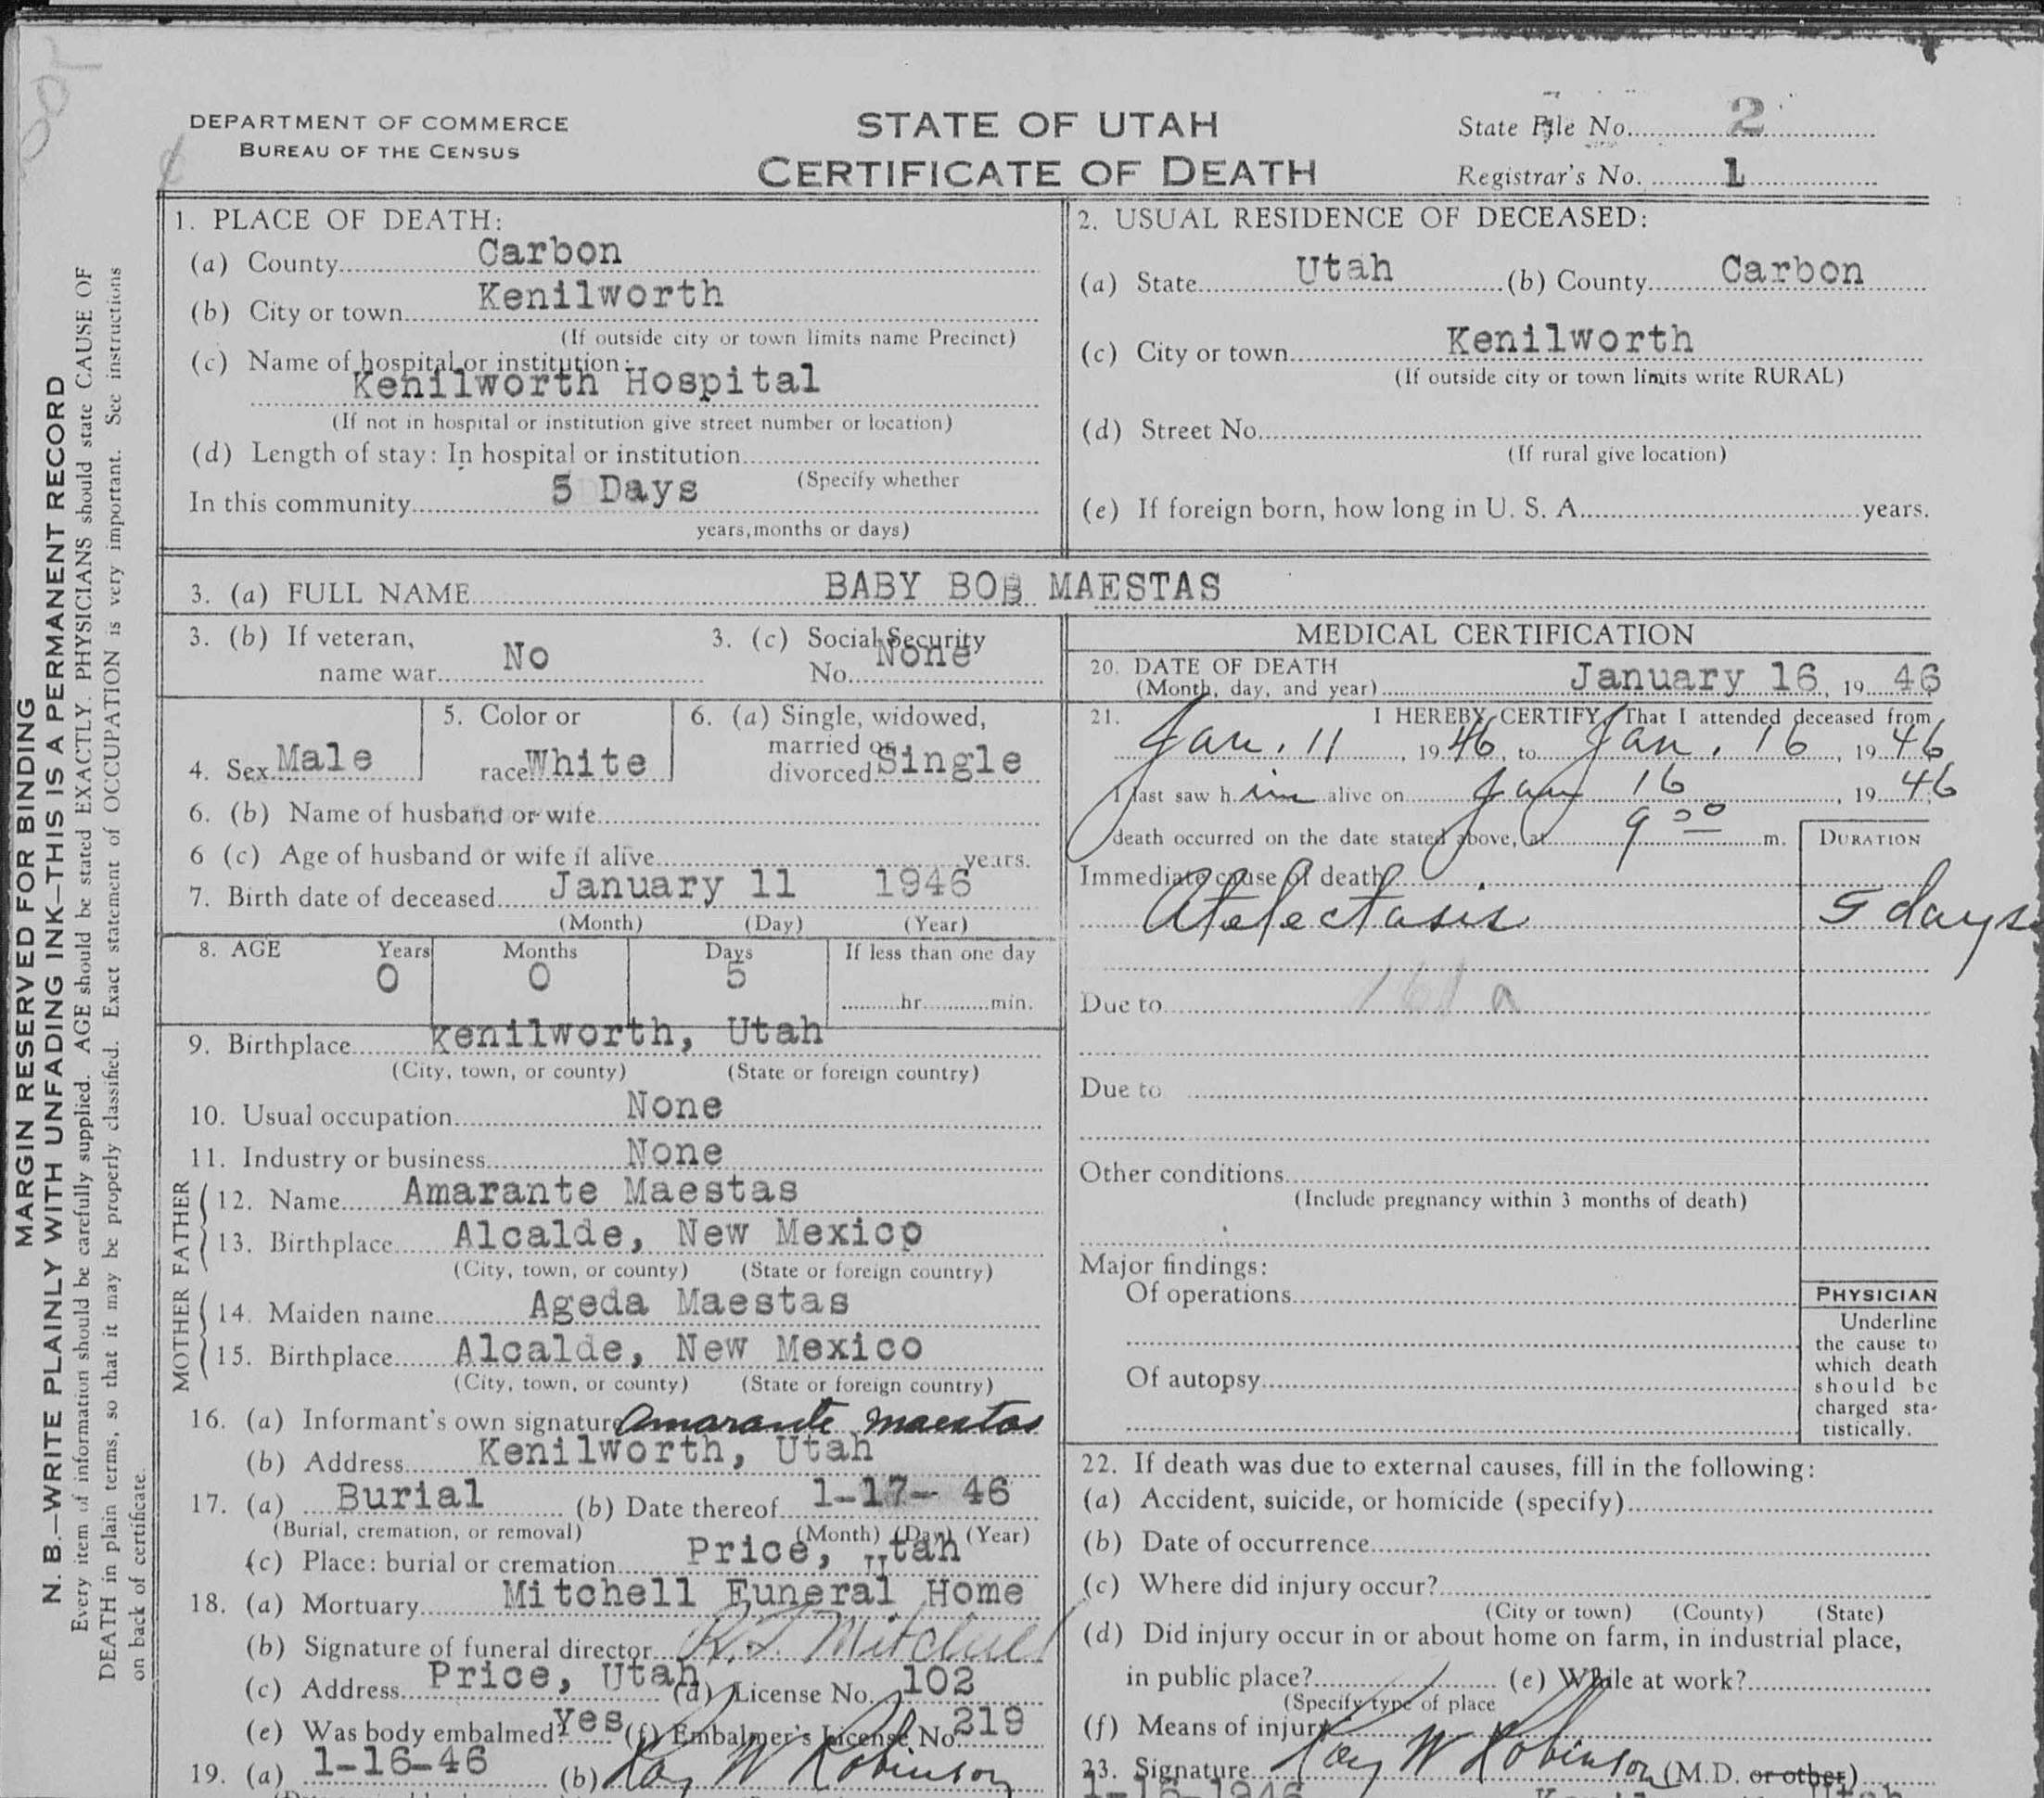 DEPARTMENT OF COMMERCE
BUREAU OF THE CENSUS
STATE OF UTAH
CERTIFICATE OF DEATH
State File No. 2
Registrar's No. 1
MARGIN RESERVED FOR BINDING
N. B.—WRITE PLAINLY WITH UNFADING INK—THIS IS A PERMANENT RECORD
Every item of information should be carefully supplied. AGE should be stated EXACTLY. PHYSICIANS should state CAUSE OF
DEATH in plain terms, so that it may be properly classified. Exact statement of OCCUPATION is very important. See instructions
on back of certificate.
1. PLACE OF DEATH:
(a) County Carbon
(b) City or town Kenilworth
(If outside city or town limits name Precinct)
(c) Name of hospital or institution:
Kenilworth Hospital
(If not in hospital or institution give street number or location)
(d) Length of stay: In hospital or institution
(Specify whether
In this community 5 Days
years, months or days)
2. USUAL RESIDENCE OF DECEASED:
(a) State Utah (b) County Carbon
(c) City or town Kenilworth
(If outside city or town limits write RURAL)
(d) Street No.
(If rural give location)
(e) If foreign born, how long in U. S. A. years.
3. (a) FULL NAME BABY BOB MAESTAS
3. (b) If veteran,
name war No
3. (c) Social Security
No. None
4. Sex Male
5. Color or
race White
6. (a) Single, widowed,
married or
divorced Single
6. (b) Name of husband or wife
6 (c) Age of husband or wife if alive years.
7. Birth date of deceased January 11 1946
(Month) (Day) (Year)
8. AGE Years Months Days If less than one day
0 0 5 hr. min.
9. Birthplace Kenilworth, Utah
(City, town, or county) (State or foreign country)
10. Usual occupation None
11. Industry or business None
FATHER
12. Name Amarante Maestas
13. Birthplace Alcalde, New Mexico
(City, town, or county) (State or foreign country)
MOTHER
14. Maiden name Ageda Maestas
15. Birthplace Alcalde, New Mexico
(City, town, or county) (State or foreign country)
16. (a) Informant's own signature Amarante Maestas
(b) Address Kenilworth, Utah
17. (a) Burial (b) Date thereof 1-17- 46
(Burial, cremation, or removal) (Month) (Day) (Year)
(c) Place: burial or cremation Price, Utah
18. (a) Mortuary Mitchell Funeral Home
(b) Signature of funeral director Mitchell
(c) Address Price, Utah (d) License No. 102
(e) Was body embalmed? yes (f) Embalmer's License No. 219
19. (a) 1-16-46 (b) Ray W Robinson
MEDICAL CERTIFICATION
20. DATE OF DEATH
(Month, day, and year) January 16, 19 46
21. I HEREBY CERTIFY, That I attended deceased from
Jan. 11, 19 46, to Jan. 16, 19 46
I last saw h im alive on Jan 16, 19 46
death occurred on the date stated above, at 9 00 m.
DURATION
Immediate cause of death
Atelectasis 5 days
Due to 161 a
Due to
Other conditions
(Include pregnancy within 3 months of death)
Major findings:
Of operations
Of autopsy
PHYSICIAN
Underline
the cause to
which death
should be
charged sta-
tistically.
22. If death was due to external causes, fill in the following:
(a) Accident, suicide, or homicide (specify)
(b) Date of occurrence
(c) Where did injury occur?
(City or town) (County) (State)
(d) Did injury occur in or about home on farm, in industrial place,
in public place? (e) While at work?
(Specify type of place
(f) Means of injury
23. Signature Ray W Robinson (M.D. or other)
1-16-1946